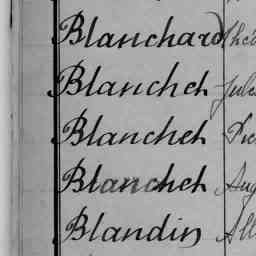 Blanchard Théo
Blanchet Jules
Blanchet
Blanchet Aug
Blandin